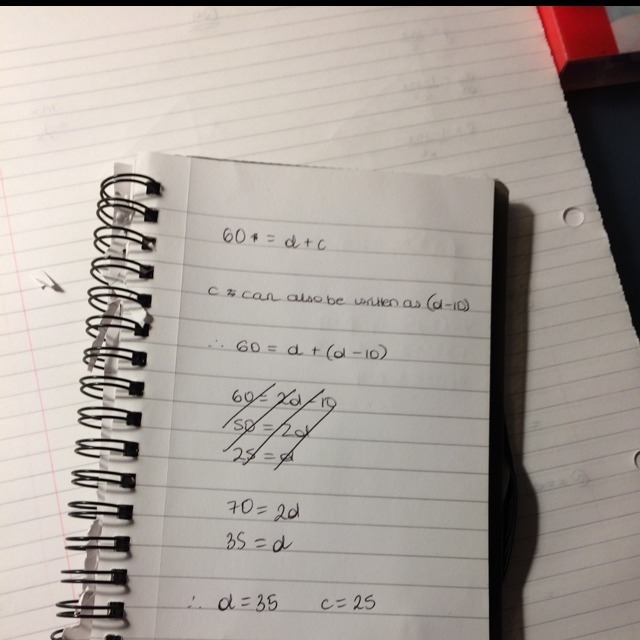 60 = d + c
c can also be written as (d-10)
∴ 60 = d + (d - 10)
60 = 2d - 10
50 = 2d
25 = d
70 = 2d
35 = d
∴ d = 35 c = 25